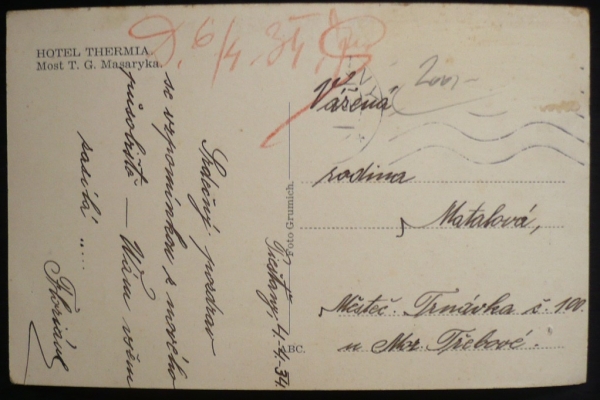 HOTEL THERMIA.
Most T. G. Masaryka.
D. 6/4. 34.
200,-
Srdečný pozdrav
se vzpomínkou z nového
působiště — Wám všem
zasílá ....
Floriánů
Pieštany, 4-4.34.
Foto Grumich.
ABC.
Vážená
rodina
Matalová,
Městeč. Trnávka č 100.
u Mor Třebové.